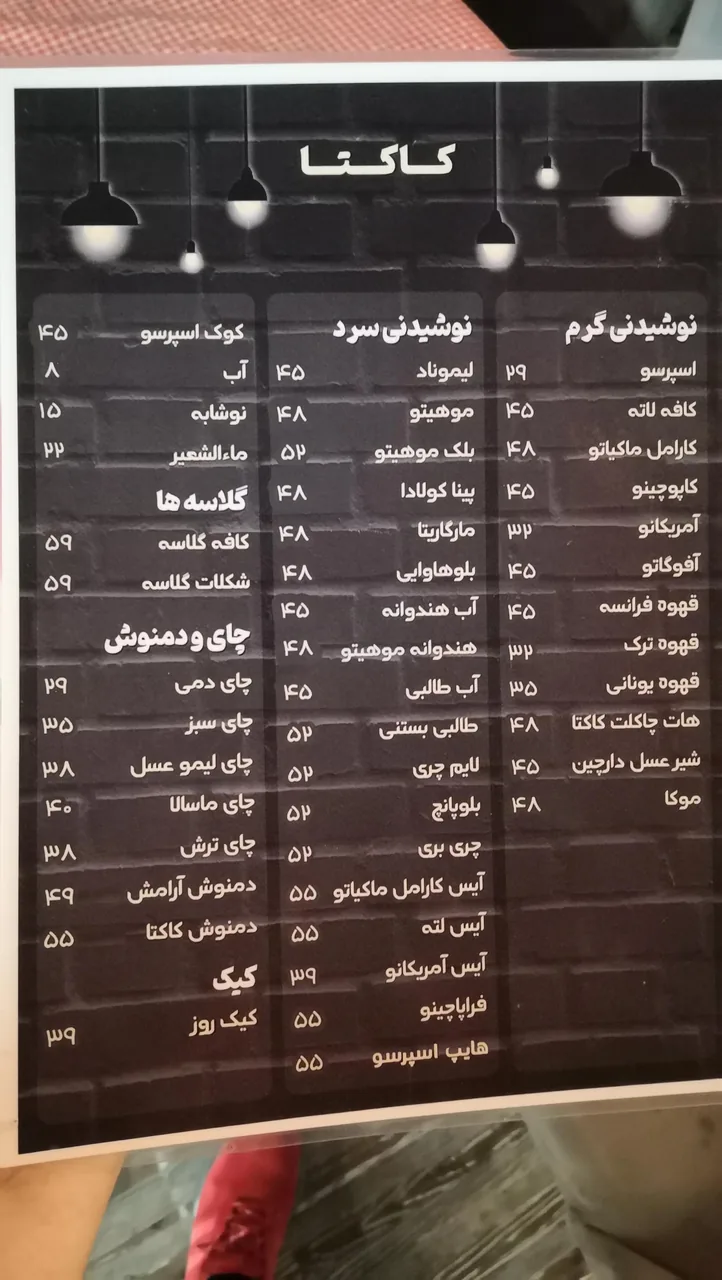 کاکتا
نوشیدنی گرم
اسپرسو ۲۹
کافه لاته ۴۵
کارامل ماکیاتو ۴۸
کاپوچینو ۴۵
آمریکانو ۳۲
آفوگاتو ۴۵
قهوه فرانسه ۴۵
قهوه ترک ۳۲
قهوه یونانی ۳۵
هات چاکلت کاکتا ۴۸
شیر عسل دارچین ۴۵
موکا ۴۸
نوشیدنی سرد
لیموناد ۴۵
موهیتو ۴۸
بلک موهیتو ۵۲
پینا کولادا ۴۸
مارگاریتا ۴۸
بلوهاوایی ۴۸
آب هندوانه ۴۵
هندوانه موهیتو ۴۸
آب طالبی ۴۵
طالبی بستنی ۵۲
لایم چری ۵۲
بلوپانچ ۵۲
چری بری ۵۲
آیس کارامل ماکیاتو ۵۵
آیس لته ۵۵
آیس آمریکانو ۳۹
فراپاچینو ۵۵
هایپ اسپرسو ۵۵
کوک اسپرسو ۴۵
آب ۸
نوشابه ۱۵
ماءالشعیر ۲۲
گلاسه ها
کافه گلاسه ۵۹
شکلات گلاسه ۵۹
چای و دمنوش
چای دمی ۲۹
چای سبز ۳۵
چای لیمو عسل ۳۸
چای ماسالا ۴۰
چای ترش ۳۸
دمنوش آرامش ۴۹
دمنوش کاکتا ۵۵
کیک
کیک روز ۳۹